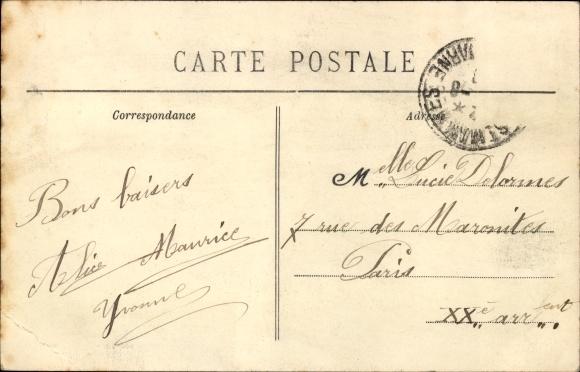 CARTE POSTALE
Correspondance
Adresse
Bons baisers
Alice Maurice
Yvonne
Melle Lucie Delormes
7 rue des Maronites
Paris
XXe arrent